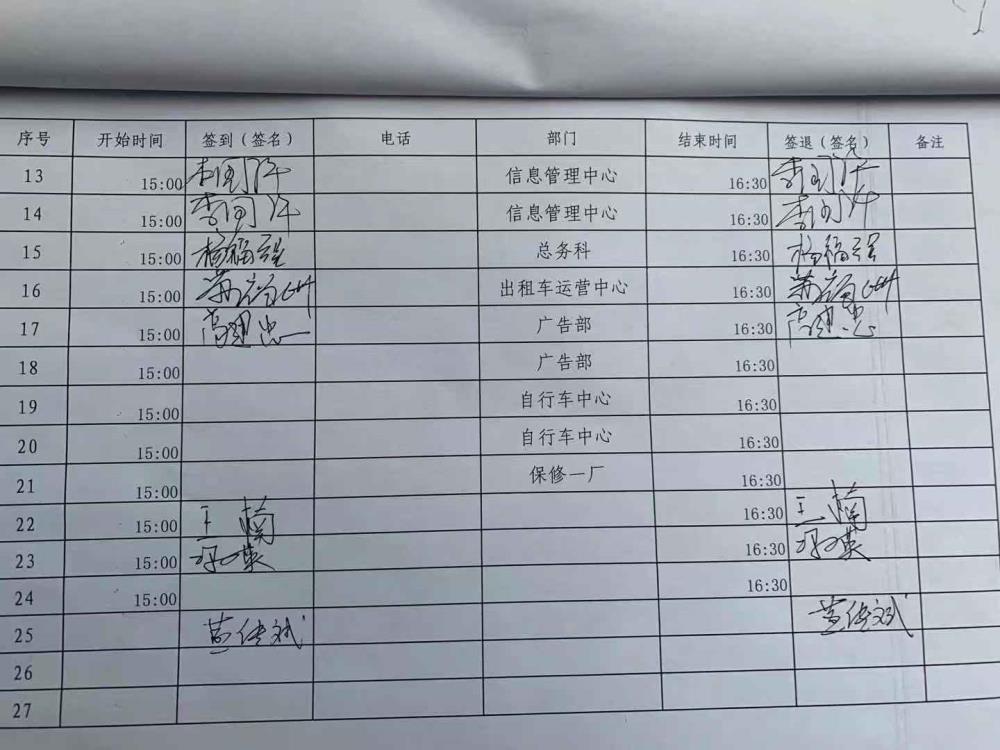 序号 开始时间 签到（签名） 电话 部门 结束时间 签退（签名） 备注
13 15:00 信息管理中心 16:30
14 15:00 信息管理中心 16:30
15 15:00 杨福强 总务科 16:30 杨福强
16 15:00 出租车运营中心 16:30
17 15:00 高建忠 广告部 16:30 高建忠
18 15:00 广告部 16:30
19 15:00 自行车中心 16:30
20 15:00 自行车中心 16:30
21 15:00 保修一厂 16:30
22 15:00 王楠 16:30 王楠
23 15:00 16:30
24 15:00 16:30
25
26
27